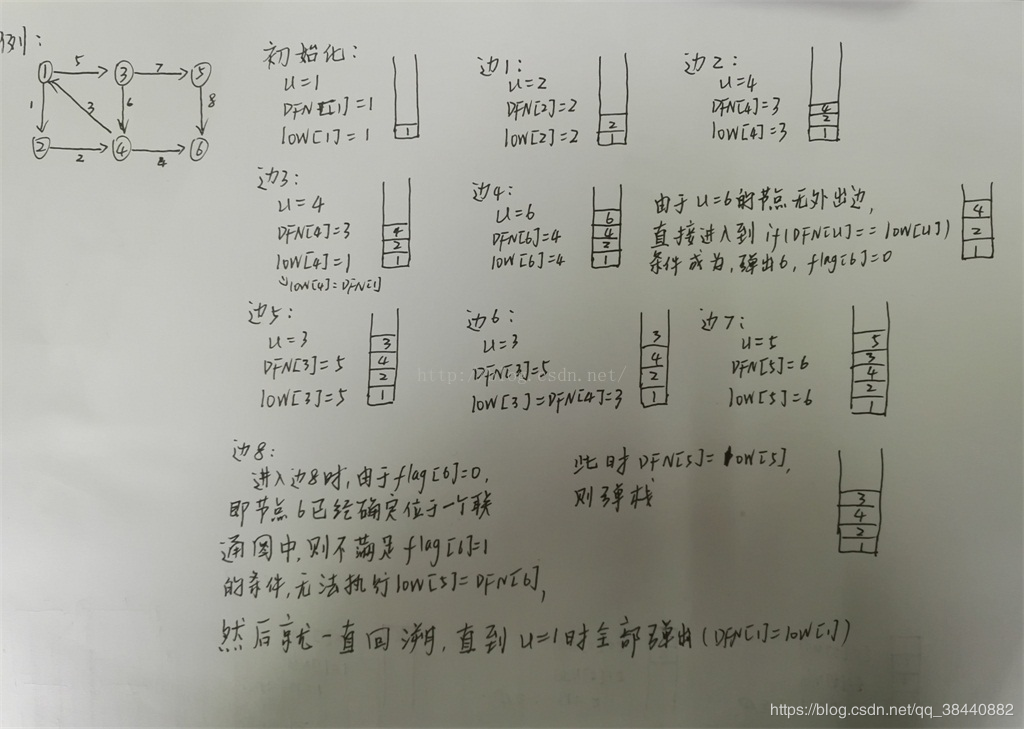 例：
1 5 3 7 5
1 3 6 8
2 2 4 4 6
初始化：
u=1
DFN[1]=1
low[1]=1
1
边1：
u=2
DFN[2]=2
low[2]=2
2
1
边2：
u=4
DFN[4]=3
low[4]=3
4
2
1
边3：
u=4
DFN[4]=3
low[4]=1
↳low[4]=DFN[1]
4
2
1
边4：
u=6
DFN[6]=4
low[6]=4
6
4
2
1
由于u=6的节点无外出边，
直接进入到if(DFN[u]==low[u])
条件成为，弹出6，flag[6]=0
4
2
1
边5：
u=3
DFN[3]=5
low[3]=5
3
4
2
1
边6：
u=3
DFN[3]=5
low[3]=DFN[4]=3
3
4
2
1
边7：
u=5
DFN[5]=6
low[5]=6
5
3
4
2
1
边8：
进入边8时，由于flag[6]=0，
即节点6已经确定位于一个联
通图中，则不满足flag[6]=1
的条件，无法执行low[5]=DFN[6]，
此时DFN[5]=low[5]，
则弹栈
3
4
2
1
然后就一直回溯，直到u=1时全部弹出(DFN[1]=low[1])
http://blog.csdn.net/
https://blog.csdn.net/qq_38440882